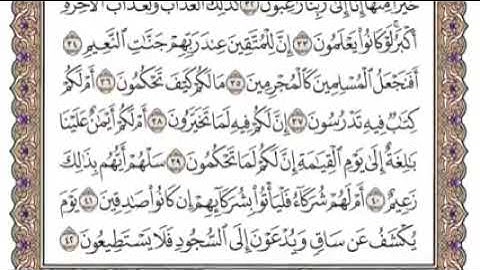 خَيْرًا مِّنْهَا إِنَّا إِلَىٰ رَبِّنَا رَاغِبُونَ ٣٢ كَذَٰلِكَ الْعَذَابُ وَلَعَذَابُ الْآخِرَةِ
أَكْبَرُ لَوْ كَانُوا يَعْلَمُونَ ٣٣ إِنَّ لِلْمُتَّقِينَ عِندَ رَبِّهِمْ جَنَّٰتِ النَّعِيمِ ٣٤
أَفَنَجْعَلُ الْمُسْلِمِينَ كَالْمُجْرِمِينَ ٣٥ مَا لَكُمْ كَيْفَ تَحْكُمُونَ ٣٦ أَمْ لَكُمْ
كِتَٰبٌ فِيهِ تَدْرُسُونَ ٣٧ إِنَّ لَكُمْ فِيهِ لَمَا تَخَيَّرُونَ ٣٨ أَمْ لَكُمْ أَيْمَٰنٌ عَلَيْنَا
بَٰلِغَةٌ إِلَىٰ يَوْمِ الْقِيَٰمَةِ إِنَّ لَكُمْ لَمَا تَحْكُمُونَ ٣٩ سَلْهُمْ أَيُّهُم بِذَٰلِكَ
زَعِيمٌ ٤٠ أَمْ لَهُمْ شُرَكَاءُ فَلْيَأْتُوا بِشُرَكَائِهِمْ إِن كَانُوا صَٰدِقِينَ ٤١ يَوْمَ
يُكْشَفُ عَن سَاقٍ وَيُدْعَوْنَ إِلَى السُّجُودِ فَلَا يَسْتَطِيعُونَ ٤٢